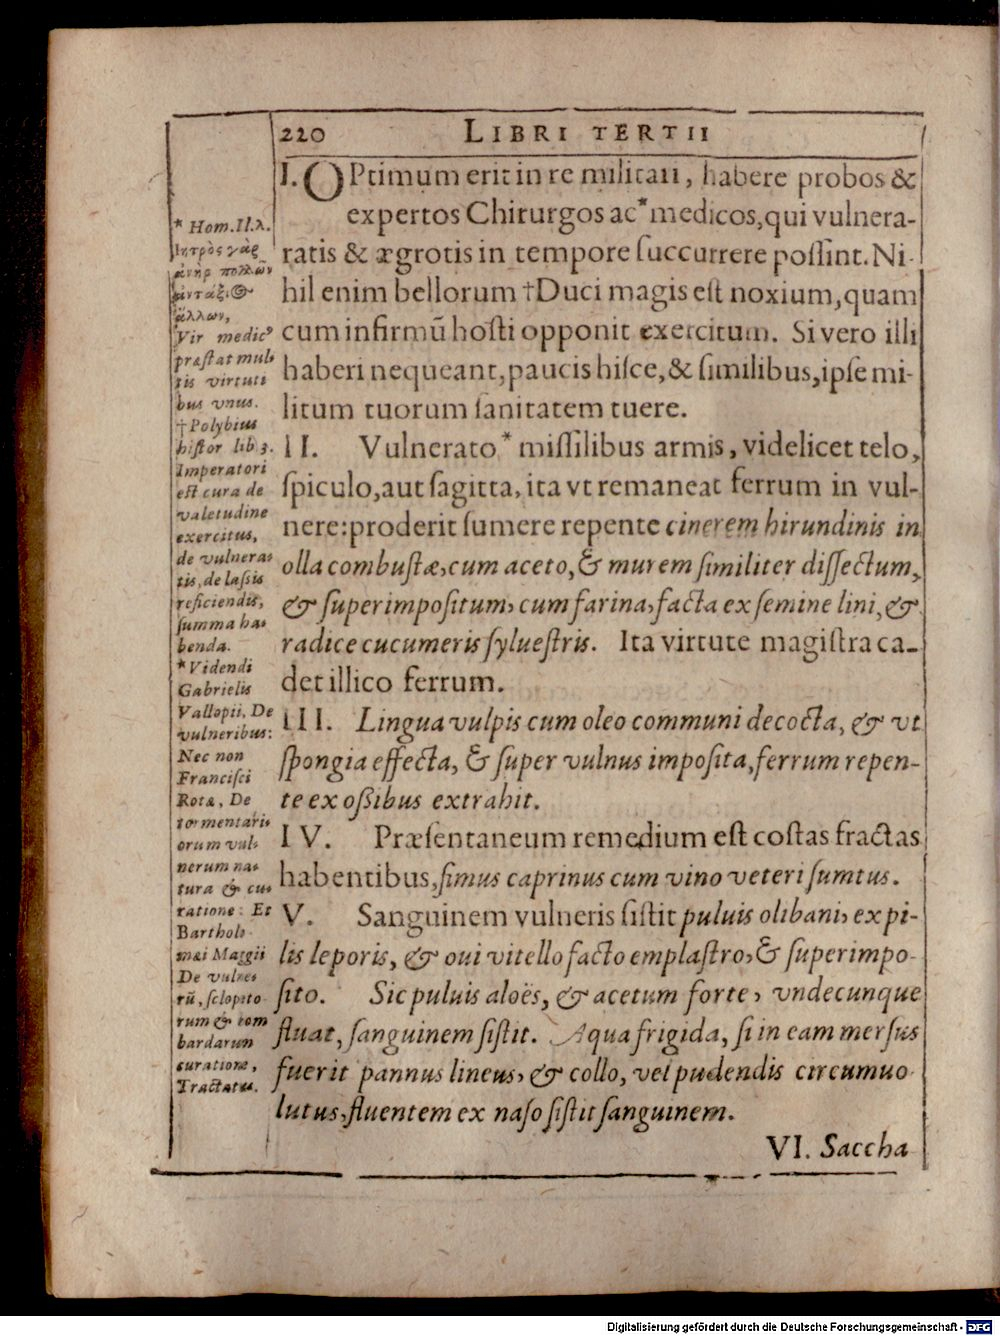 220 LIBRI TERTII
I. OPtimum erit in re militari, habere probos &
expertos Chirurgos ac* medicos, qui vulnera-
ratis & ægrotis in tempore ſuccurrere poſſint. Ni-
hil enim bellorum †Duci magis eſt noxium, quam
cum infirmū hoſti opponit exercitum. Si vero illi
haberi nequeant, paucis hiſce, & ſimilibus, ipſe mi-
litum tuorum ſanitatem tuere.
II. Vulnerato* miſſilibus armis, videlicet telo,
ſpiculo, aut ſagitta, ita vt remaneat ferrum in vul-
nere: proderit ſumere repente cinerem hirundinis in
olla combuſtæ, cum aceto, & murem ſimiliter diſſectum,
& ſuperimpoſitum, cum farina, facta ex ſemine lini, &
radice cucumeris ſylueſtris. Ita virtute magiſtra ca-
det illico ferrum.
III. Lingua vulpis cum oleo communi decocta, & vt
ſpongia effecta, & ſuper vulnus impoſita, ferrum repen-
te ex oßibus extrahit.
IV. Præſentaneum remedium eſt coſtas fractas
habentibus, ſimus caprinus cum vino veteri ſumtus.
V. Sanguinem vulneris ſiſtit puluis olibani, ex pi-
lis leporis, & oui vitello facto emplaſtro, & ſuperimpo-
ſito. Sic puluis aloës, & acetum forte, vndecunque
fluat, ſanguinem ſiſtit. Aqua frigida, ſi in eam merſus
fuerit pannus lineus, & collo, vel pudendis circumuo-
lutus, fluentem ex naſo ſiſtit ſanguinem.
VI. Saccha
* Hom. Il. λ.
Ἰητρὸς γὰρ
ἀνὴρ πολλῶν
ἀντάξιος
ἄλλων,
Vir medicꝰ
præſtat mul-
tis virtuti
bus vnus.
† Polybius
hiſtor lib 3.
Imperatori
eſt cura de
valetudine
exercitus,
de vulnera-
tis, de laſsis
reficiendis,
ſumma ha-
benda.
* Videndi
Gabrielis
Vallopii, De
vulneribus:
Nec non
Franciſci
Rotæ, De
tormentari-
orum vul-
nerum na-
tura & cu-
ratione: Et
Bartholo-
mæi Maggii
De vulne-
rū, ſclopito-
rum & bom
bardarum
curatione,
Tractatus.
Digitalisierung gefördert durch die Deutsche Forschungsgemeinschaft - DFG